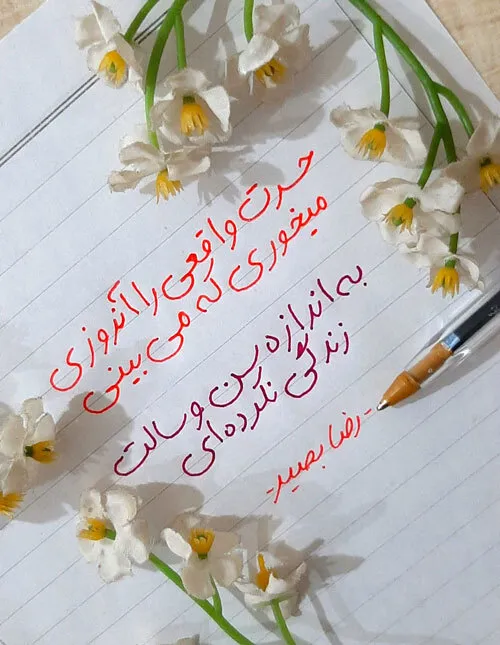 حسرت واقعی را آنروزی
میخوری که می بینی
به اندازه سن و سالت
زندگی نکرده‌ای
-رضا بصیر-